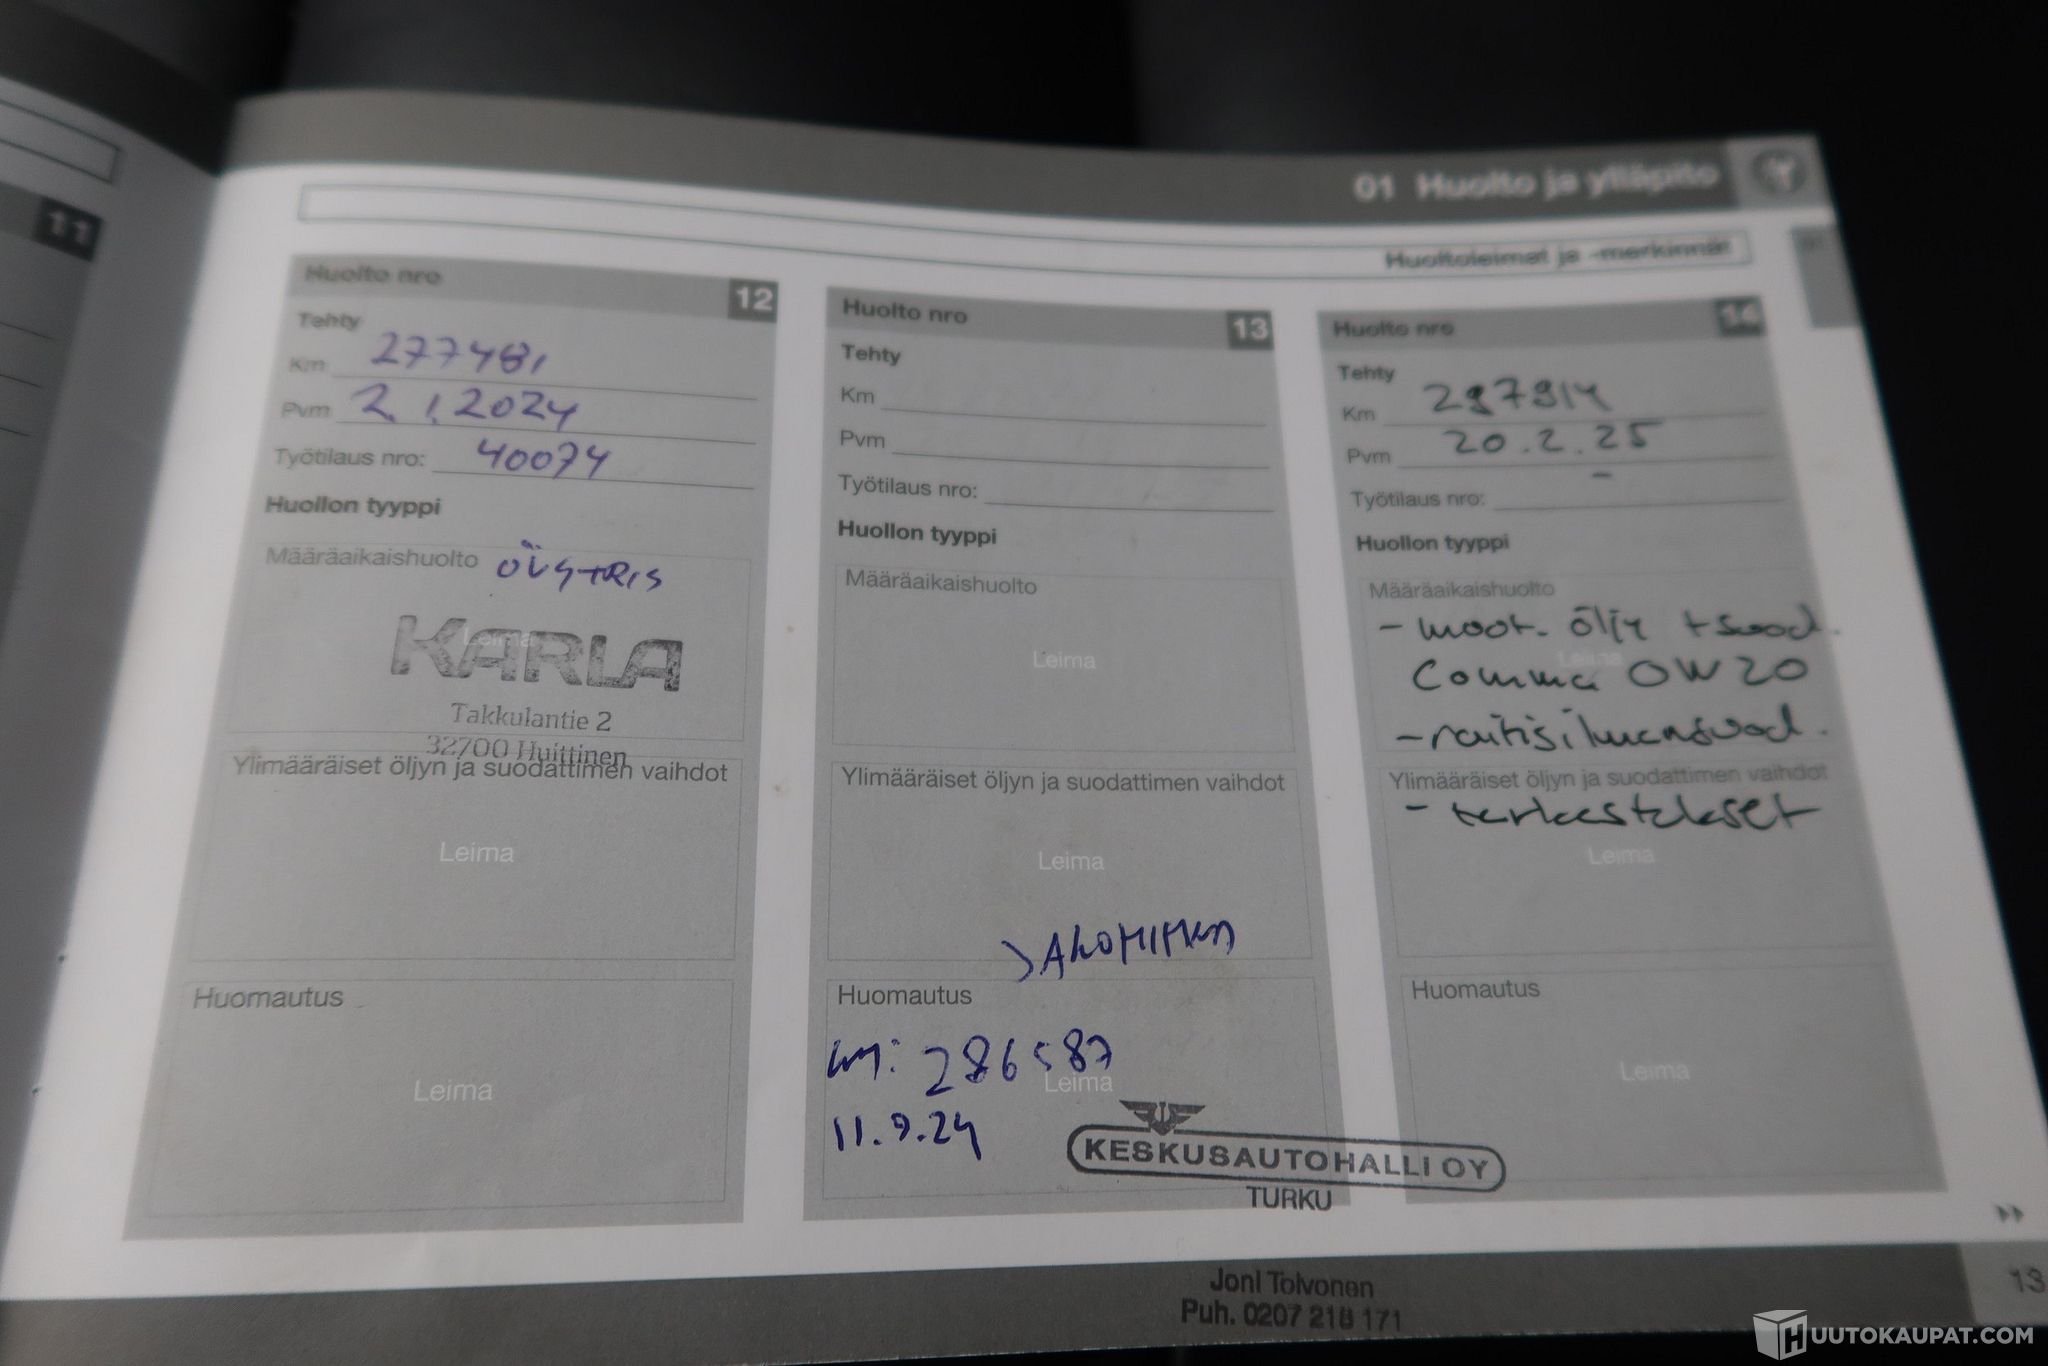 11
01 Huolto ja ylläpito
Huoltoleimat ja -merkinnät
Huolto nro 12
Tehty
Km 277481
Pvm 2.1.2024
Työtilaus nro: 40074
Huollon tyyppi
Määräaikaishuolto
Leima
KARLA
Takkulantie 2
32700 Huittinen
Ylimääräiset öljyn ja suodattimen vaihdot
Leima
Huomautus
Leima
Huolto nro 13
Tehty
Km
Pvm
Työtilaus nro:
Huollon tyyppi
Määräaikaishuolto
Leima
Ylimääräiset öljyn ja suodattimen vaihdot
Leima
JAKOHIHNA
Huomautus
km: 286587
Leima
11.9.24
KESKUSAUTOHALLI OY
TURKU
Joni Toivonen
Puh. 0207 218 171
Huolto nro 14
Tehty
Km 297914
Pvm 20.2.25
Työtilaus nro: -
Huollon tyyppi
Määräaikaishuolto
- moot. öljy + suod.
Leima
Comma 0W20
- raitisilmansuod.
Ylimääräiset öljyn ja suodattimen vaihdot
- tarkastukset
Leima
Huomautus
Leima
13
HUUTOKAUPAT.COM